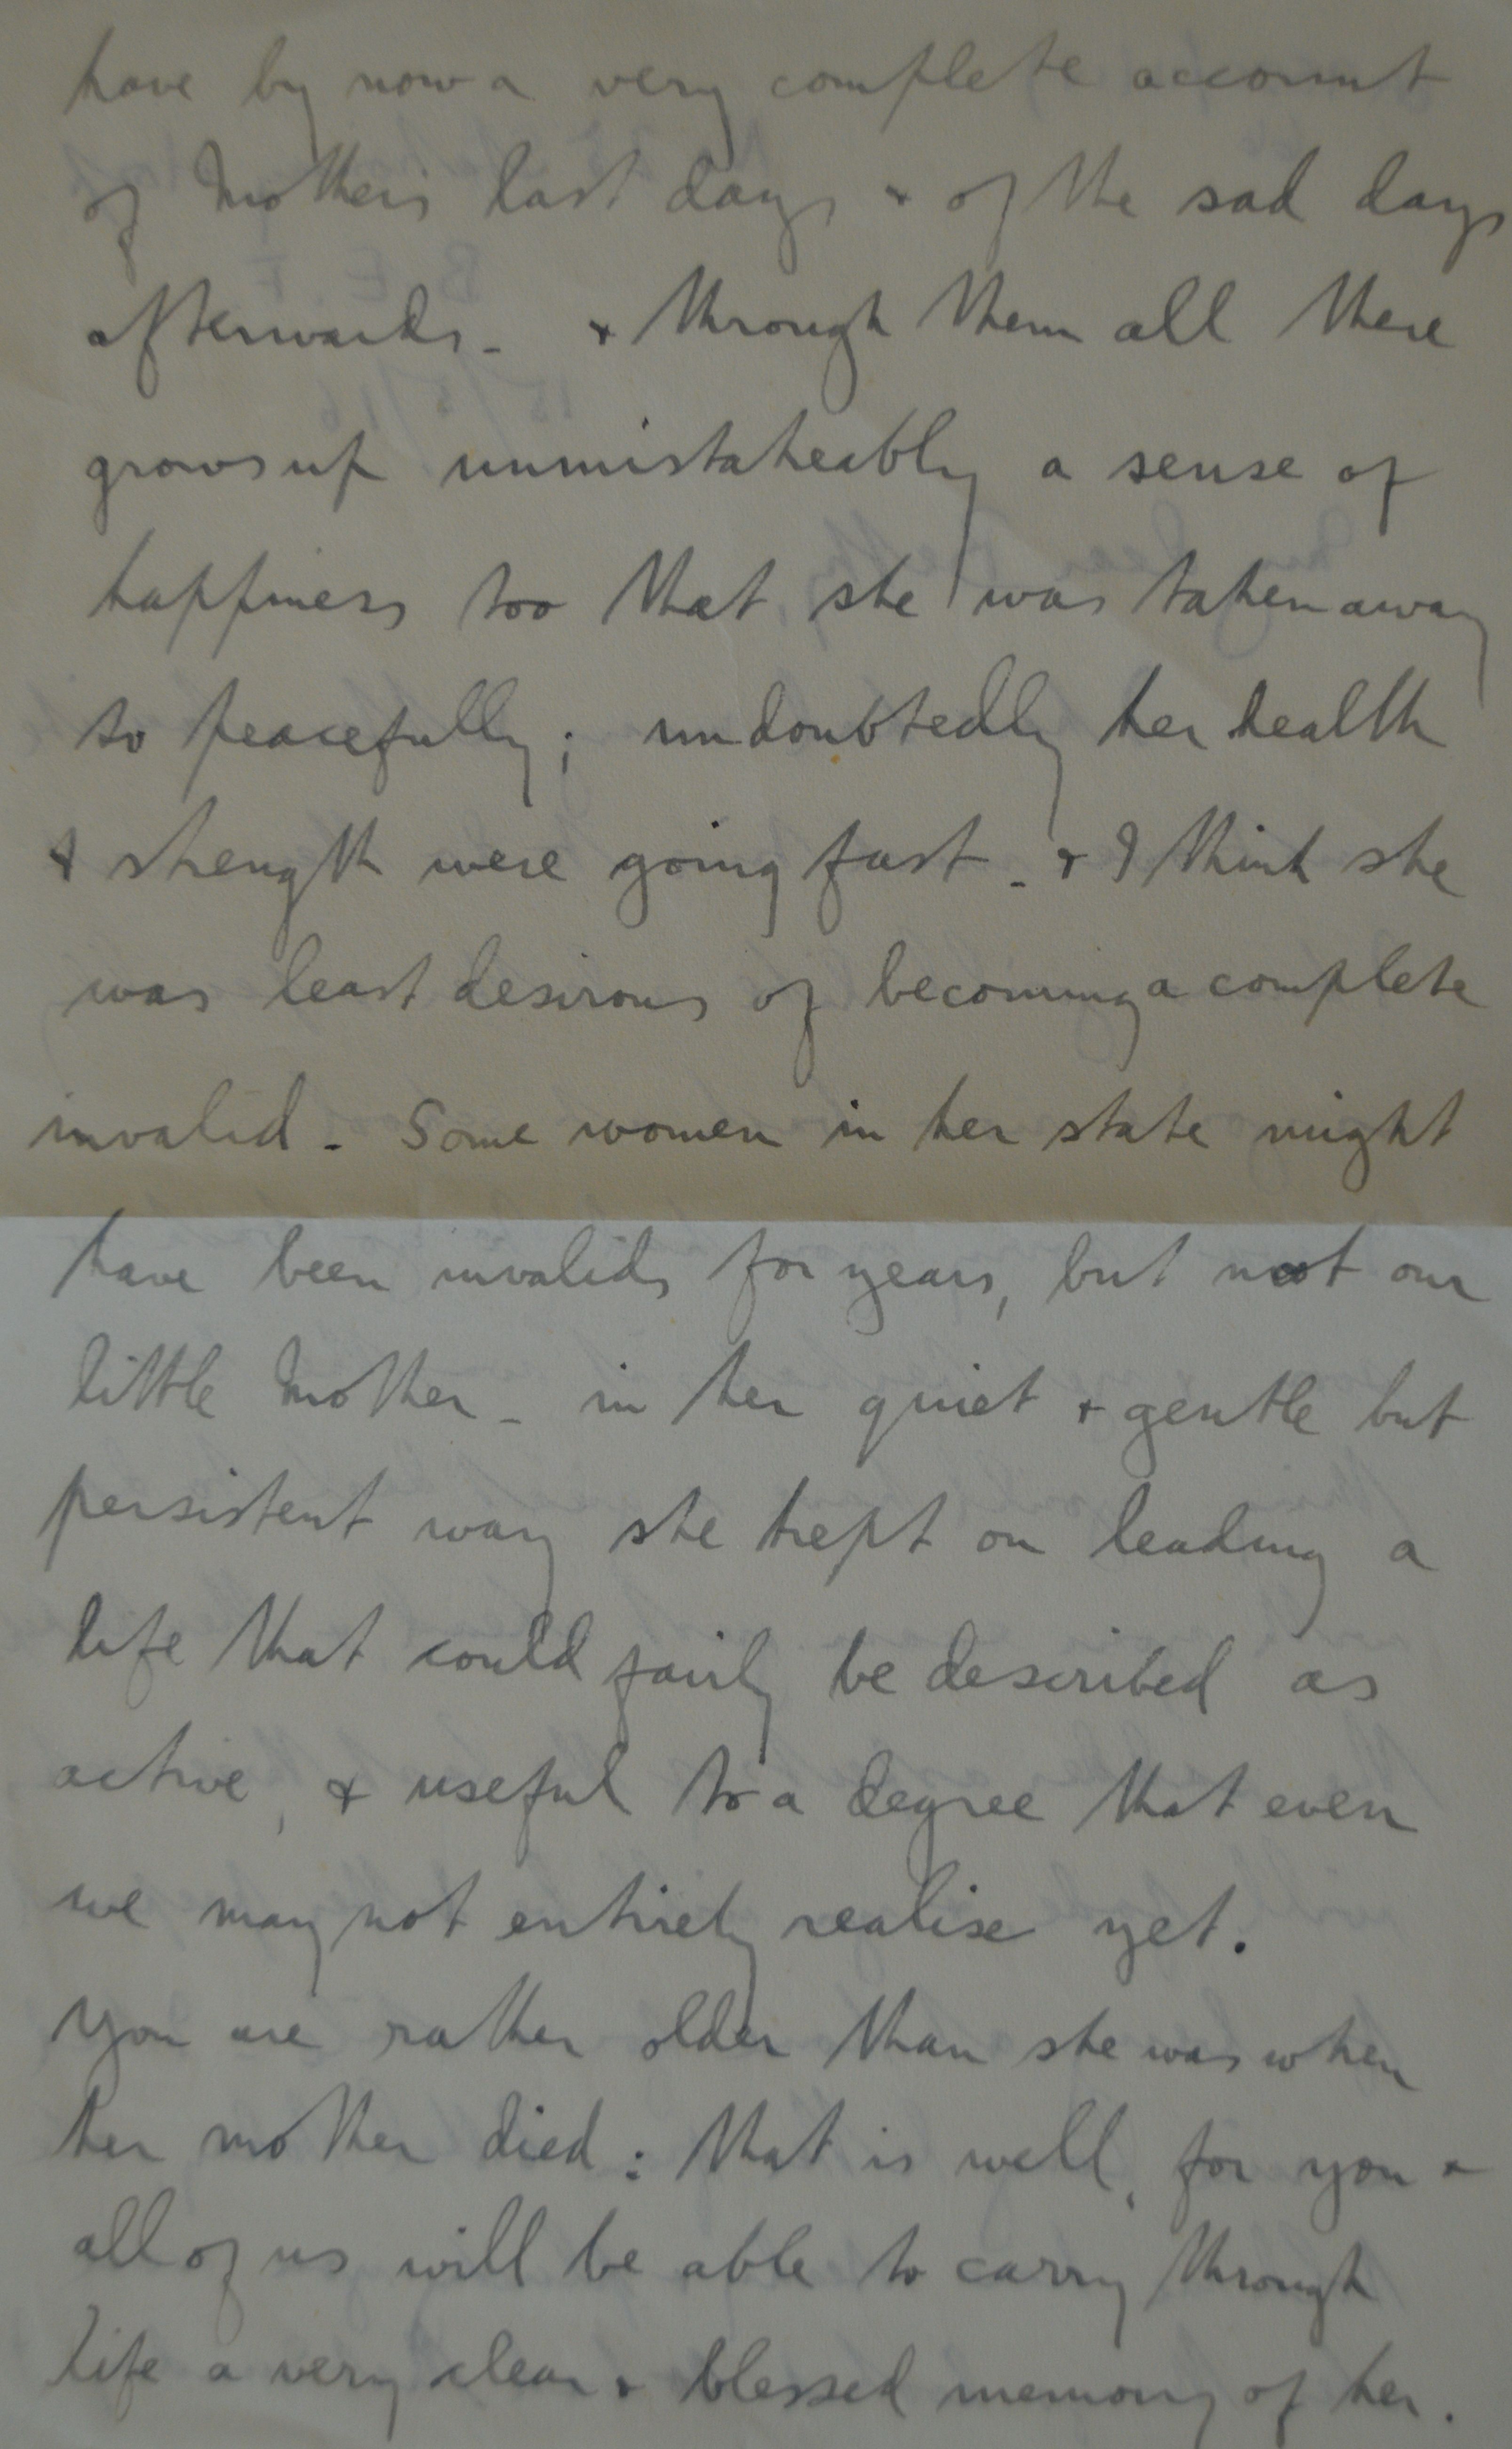 have by now a very complete account
of Mothers last days & of the sad days
afterwards - & through them all there
grows up unmistakeably a sense of
happiness too that she was taken away
so peacefully; undoubtedly her health
& strength were going fast - & I think she
was least desirous of becoming a complete
invalid - Some women in her state might
have been invalids for years, but not our
little Mother - in her quiet & gentle but
persistent way she kept on leading a
life that could fairly be described as
active, & useful to a degree that even
we may not entirely realise yet.
You are rather older than she was when
her mother died: that is well, for you &
all of us will be able to carry through
life a very clear & blessed memory of her.